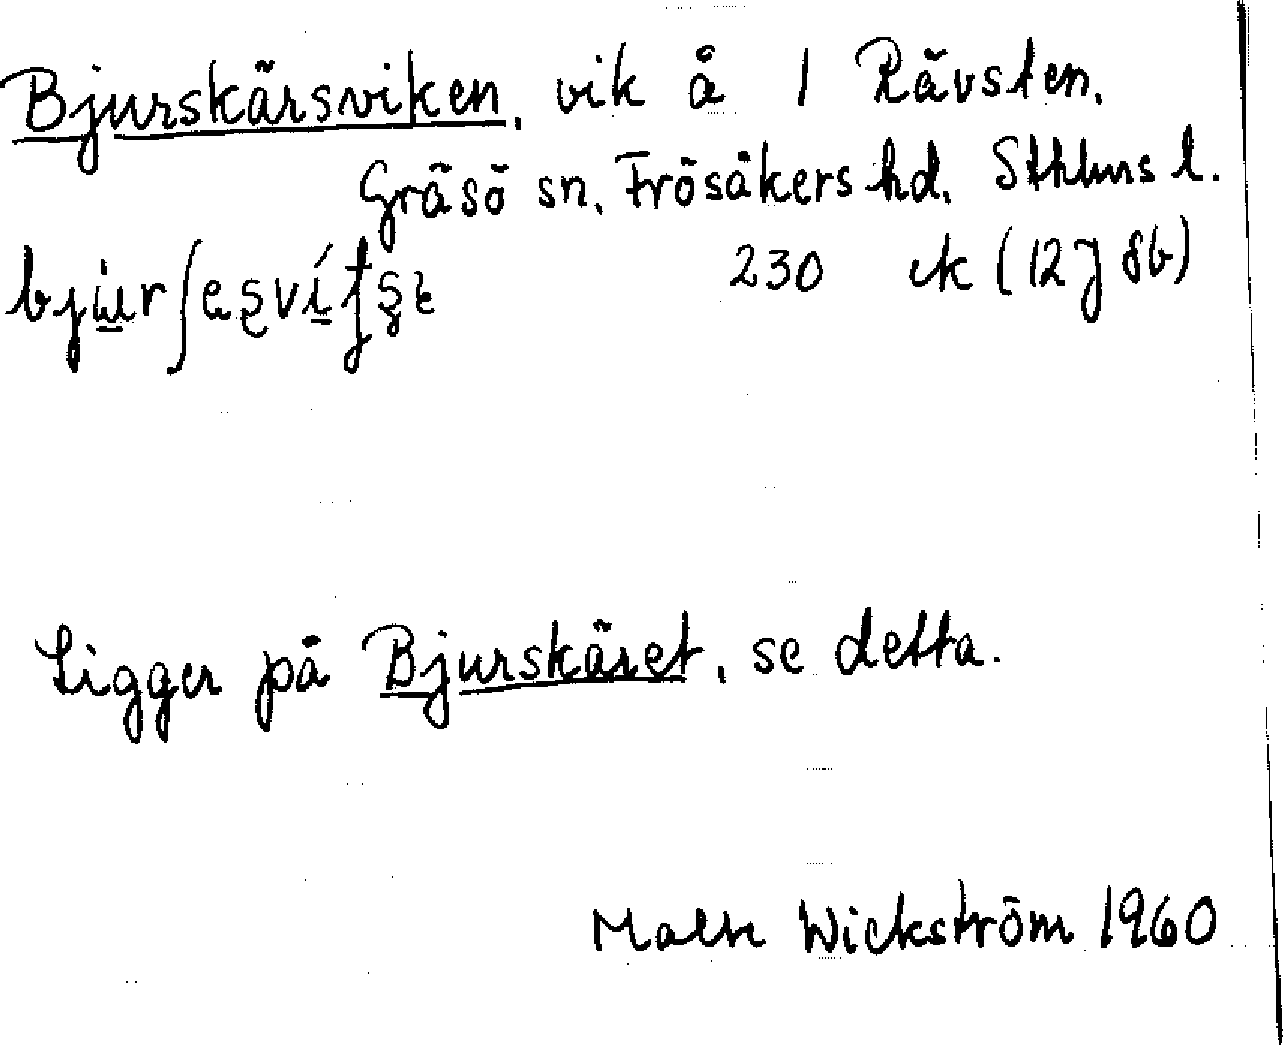 Bjurskärsviken, vik å 1 Rävsten,
Gräsö sn, Frösåkers hd, Sthlms l.
230 ek (12J 8b)
Ligger på Bjurskäret, se detta.
Wickström 1960